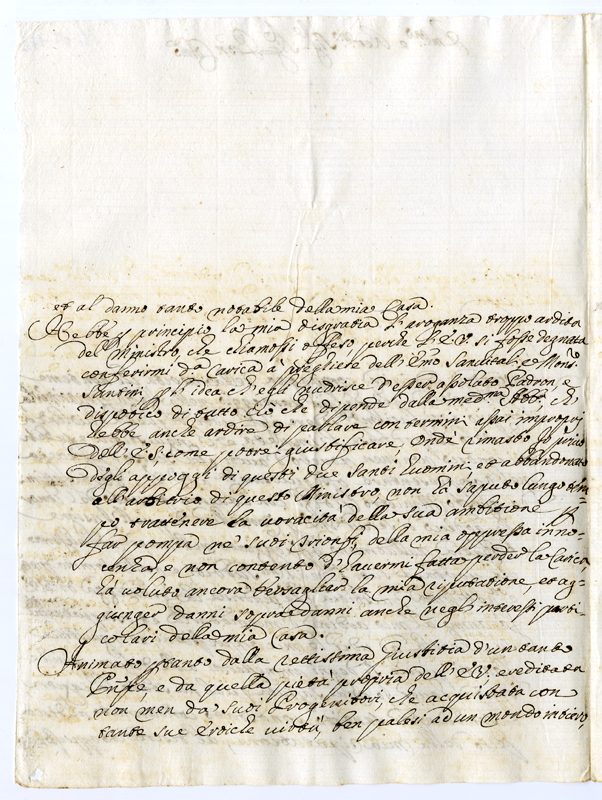 et al danno tanto notabile della mia Casa.
Hebbe p principio la mia disgratia l'aroganza troppo ardita
del Ministro, che chiamosi offeso perche l'E.V. si fosse degnata
conferirmi d.a Carica à preghiere dell' Emo Sanvitali, e Mons.
Santini p l'idea ch'egli nudrisce d'esser assoluto Padron, e
dispotico di tutto ciò che dipende dalla med.ma ch'
hebbe anche ardire di parlare con termini assai improprij
dell'E.S., come potrei giustificare, onde rimasto Io privo
degli appoggi di questi due Santi huomini, et abbandonato
all'arbitrio di questo Ministro, non hà saputo lungo tem
po trattenere la voracità della sua ambitione p
far pompa ne' suoi trionfi della mia oppressa inno-
cenza, e non contento d'havermi fatta perder la Carica
hà voluto ancora bersagliar la mia riputatione, et ag-
giunger danni sopra danni anche negli interessi parti-
colari della mia Casa.
Animato ptanto dalla rettissima giustitia d'un tanto
Pnpe e da quella pietà propria dell'E.V., ereditata
non men da' suoi Progenitori, che acquistata con
tante sue Eroiche virtù, ben palesi ad un mondo intiero,